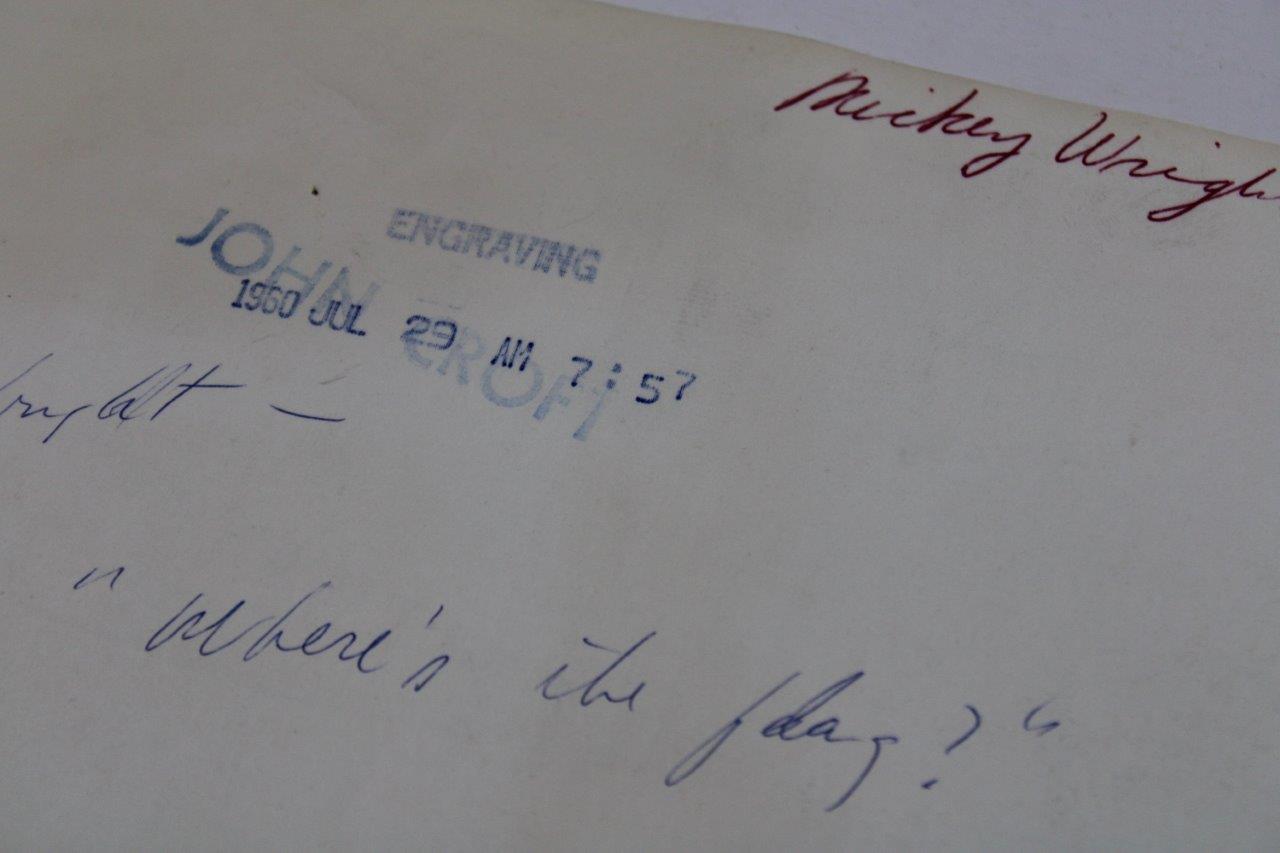 Mickey Wrigh
ENGRAVING
JOHN CROFT
1960 JUL 29 AM 7:57
right —
"Where's the flag?"